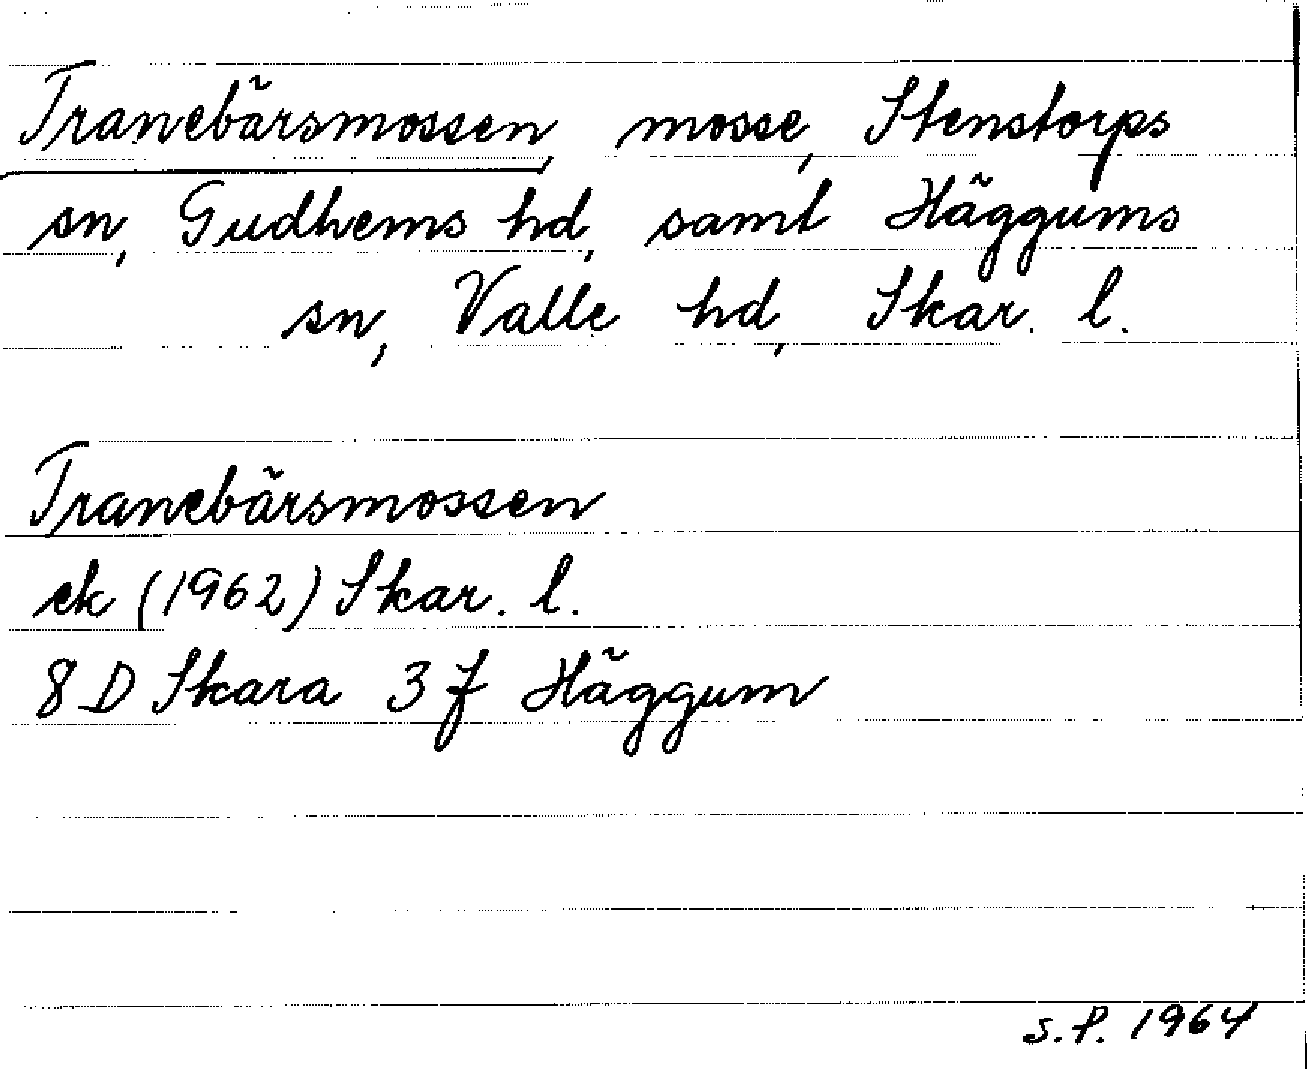 Tranebärsmossen, mosse, Stenstorps
sn, Gudhems hd, samt Häggums
sn, Valle hd, Skar. l.
Tranebärsmossen
ek (1962) Skar. l.
8 D Skara 3 f Häggum
S.P. 1964